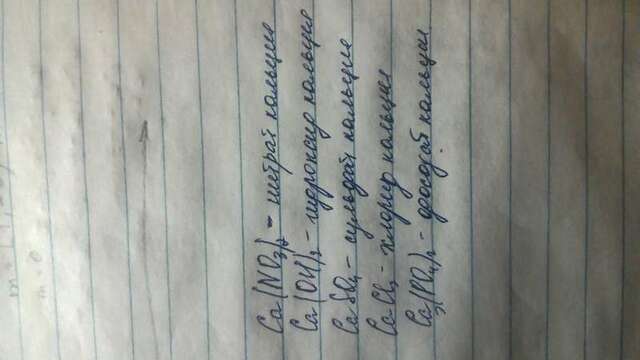 Ca(NO₃)₂ - нитрат кальция
Ca(OH)₂ - гидроксид кальция
CaSO₄ - сульфат кальция
CaCl₂ - хлорид кальция
Ca₃(PO₄)₂ - фосфат кальция